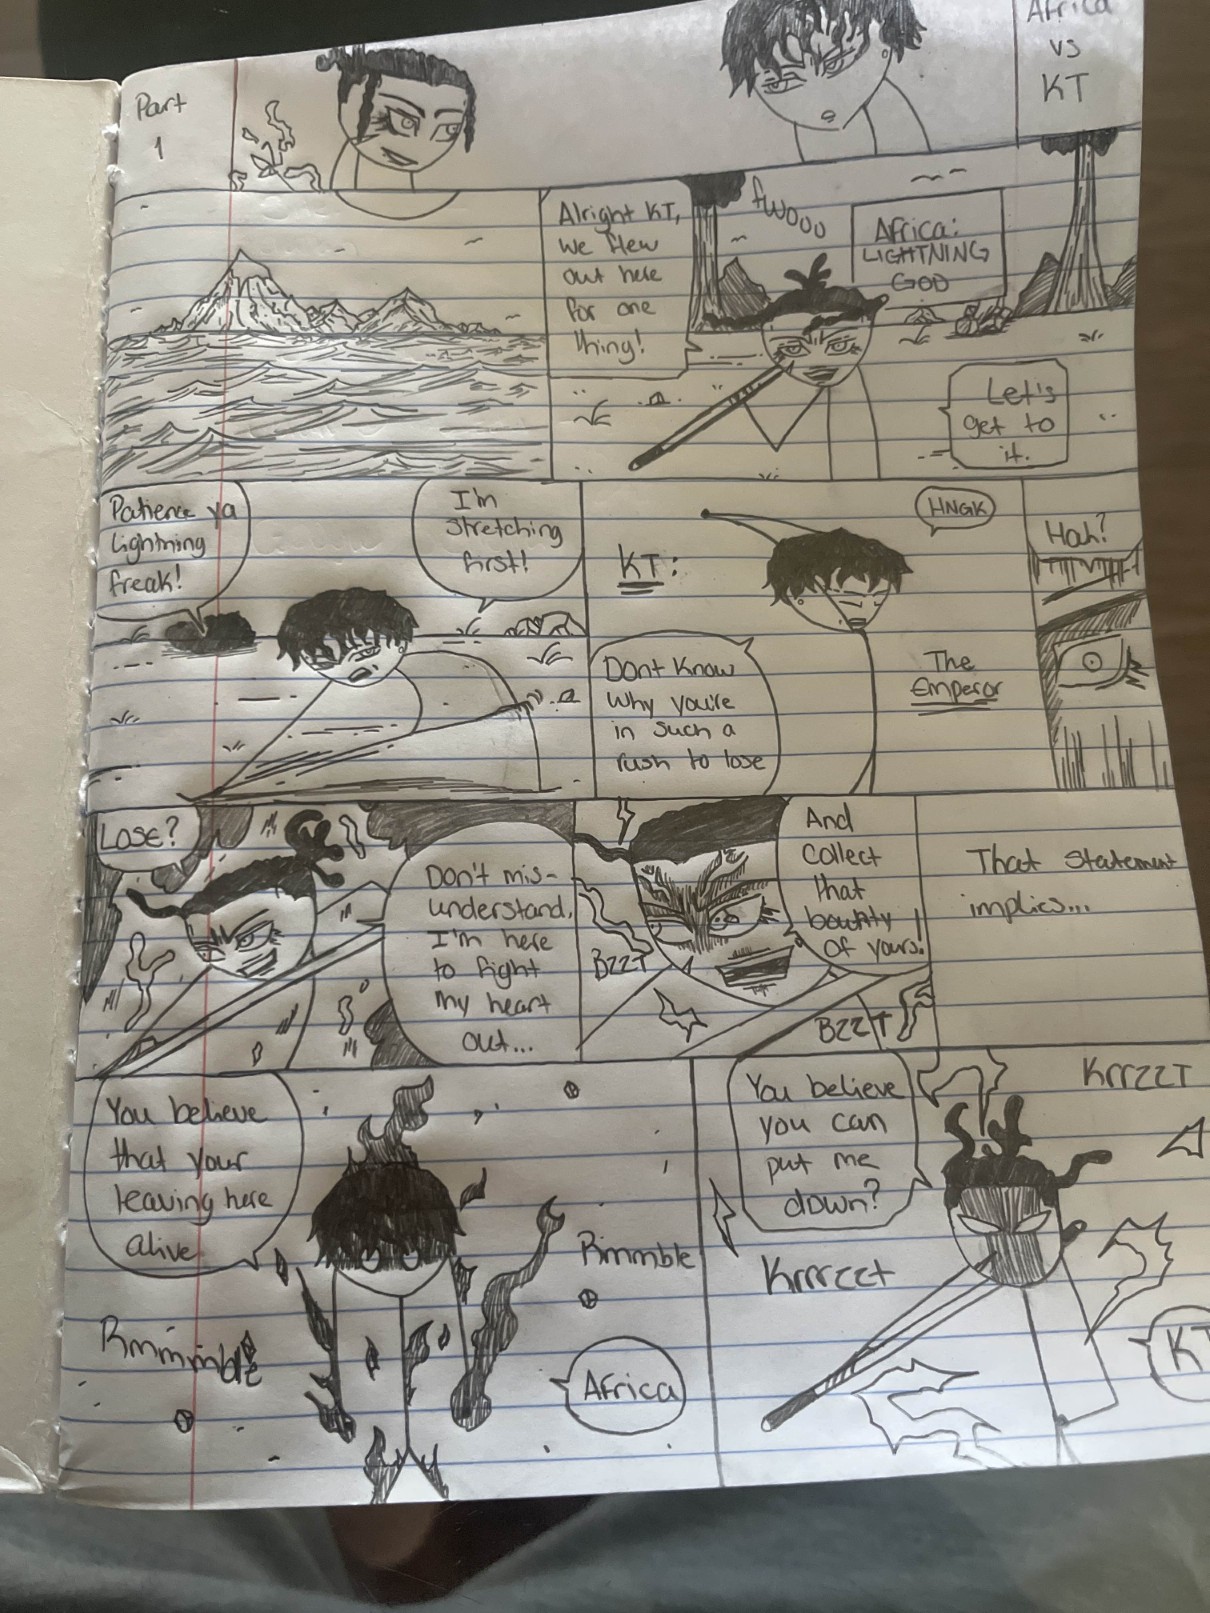 Part
1
Africa
vs
KT
Alright KT,
we flew
out here
for one
thing!
fwooo
Africa:
LIGHTNING
GOD
Let's
get to
it.
Patience ya
lightning
freak!
I'm
stretching
first!
KT:
HNGK
Dont know
why you're
in such a
rush to lose
The
Emperor
Hah?
Lose?
Don't mis-
understand,
I'm here
to fight
my heart
out...
BZZT
And
collect
that
bounty
of yours!
BZZT
That statement
implies...
You believe
that your
leaving here
alive
Rmmmble
Rmmble
Africa
You believe
you can
put me
down?
KrrzzT
Krrrzzt
KT